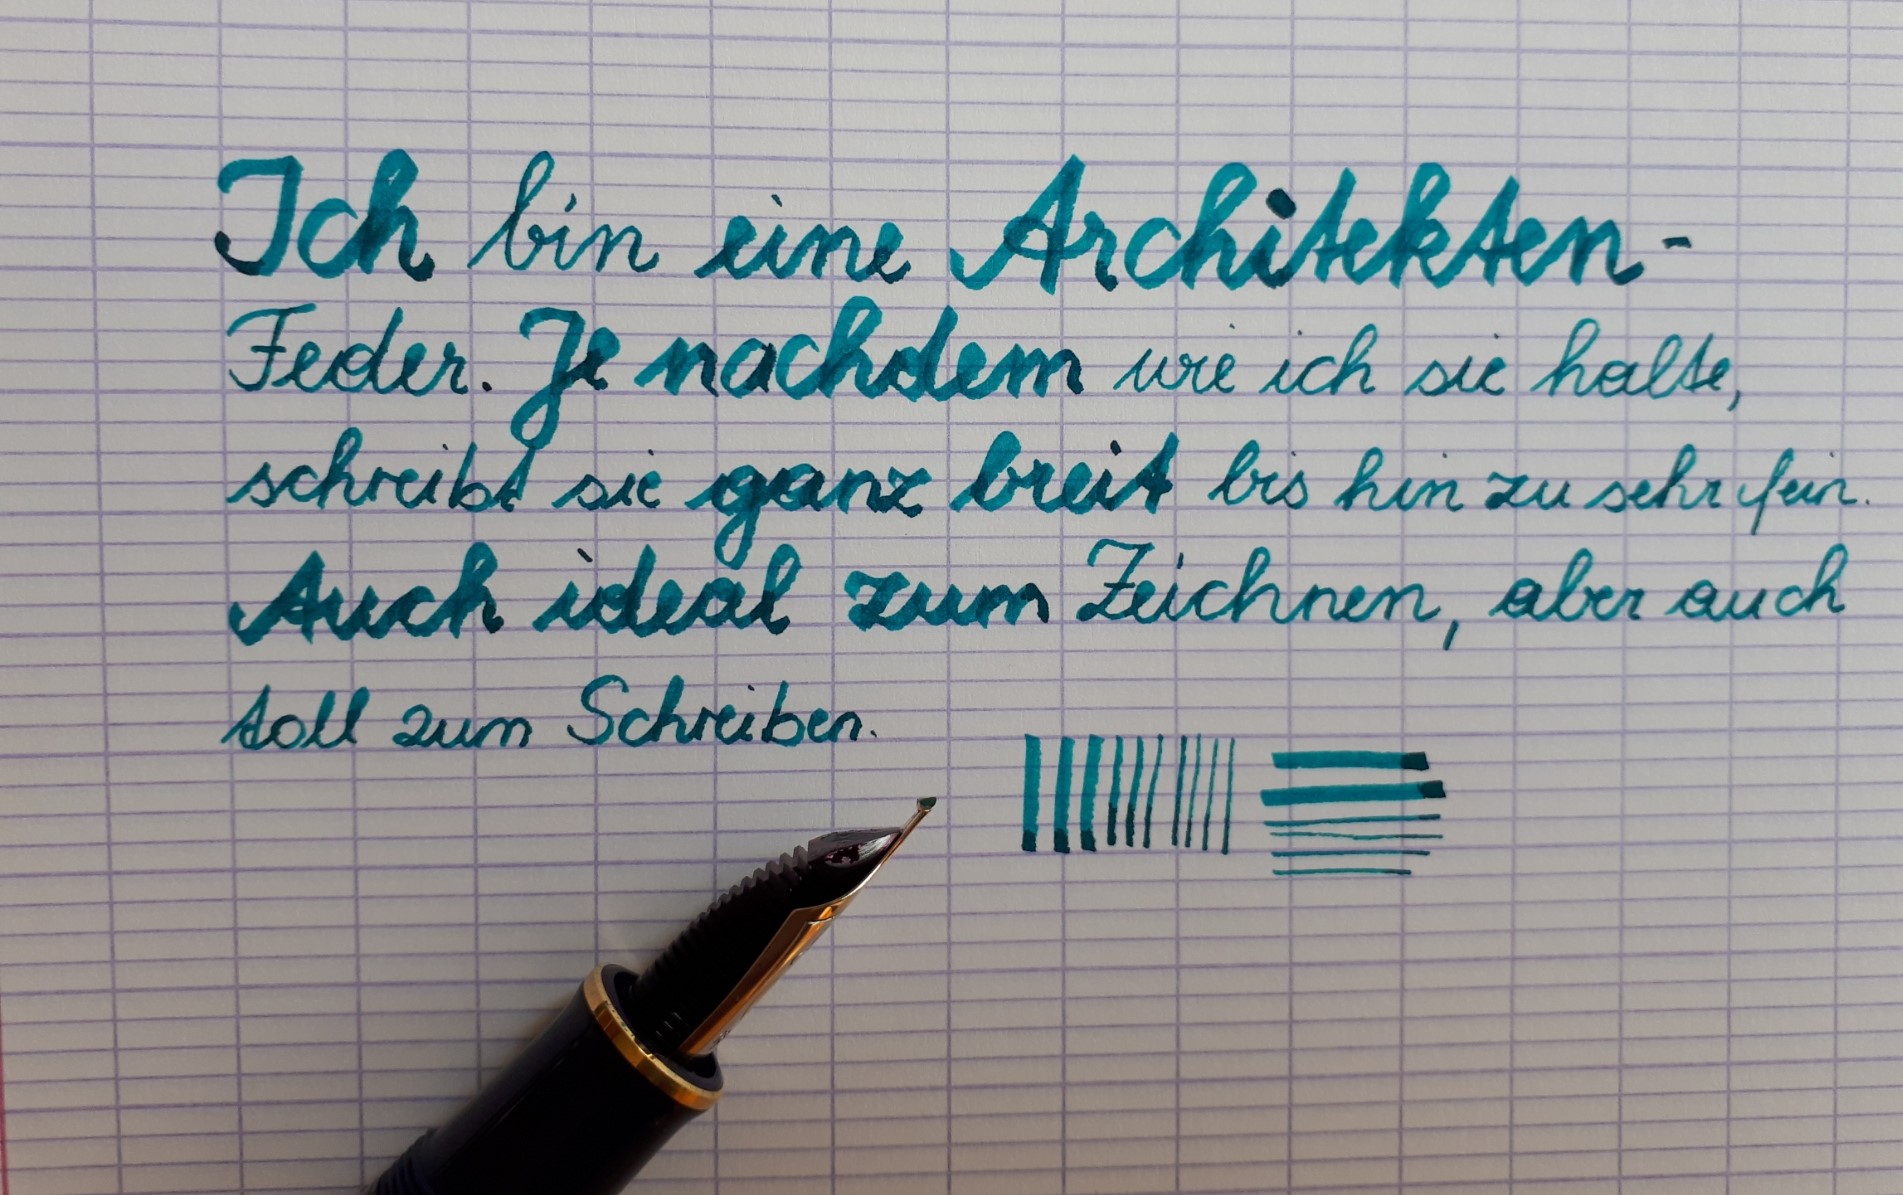 Ich bin eine Architekten-
Feder. Je nachdem wie ich sie halte,
schreibt sie ganz breit bis hin zu sehr fein.
Auch ideal zum Zeichnen, aber auch
toll zum Schreiben.